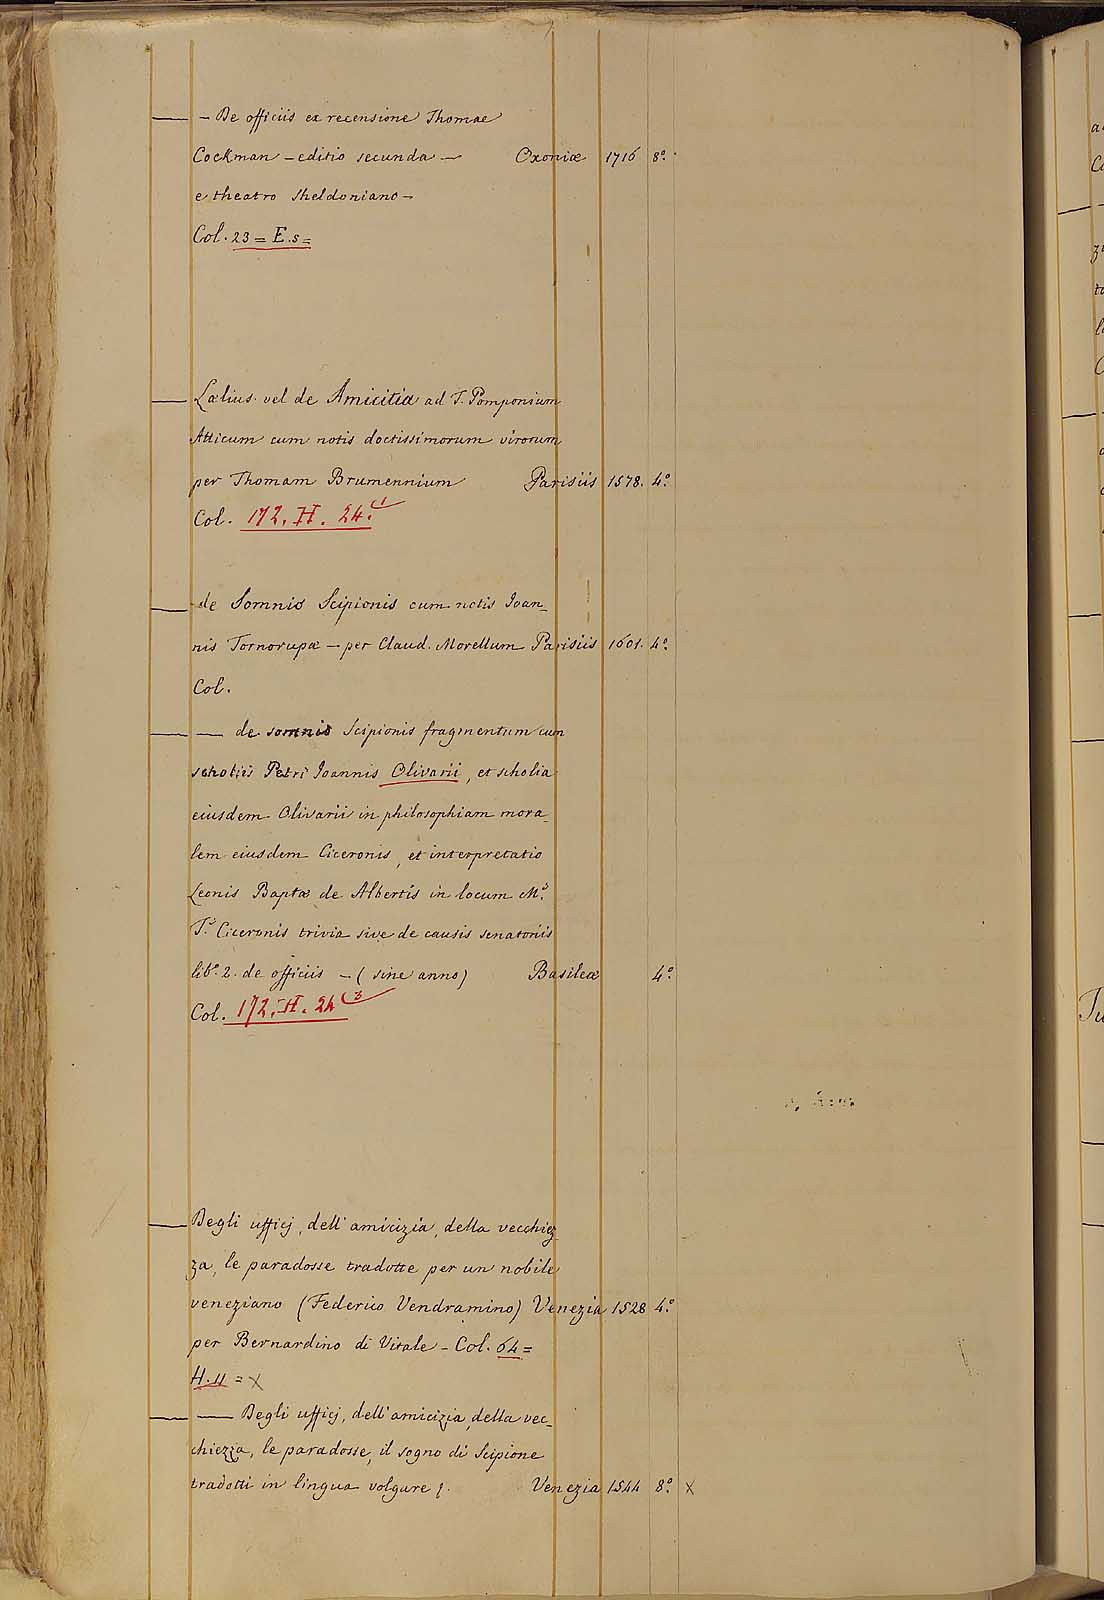 — – De officiis ex recensione Thomae
Cockman – editio secunda – Oxoniæ 1716 8.º
e theatro Sheldoniano –
Col. 23 = E.s =
— Lælius vel de Amicitia ad T. Pomponium
Atticum cum notis doctissimorum virorum
per Thomam Brumennium Parisiis 1578. 4.º
Col. 172. H. 24.(1
— de Somnio Scipionis cum notis Joan_
nis Tornorupæ – per Claud. Morellum Parisiis 1601. 4.º
Col.
— — de somnio Scipionis fragmentum cum
scholiis Petri Joannis Olivarii, et scholia
eiusdem Olivarii in philosophiam mora_
lem eiusdem Ciceronis, et interpretatio
Leonis Baptæ de Albertis in locum M.ˢ
T.ˢ Ciceronis trivia sive de causis senatoriis
lib.º 2. de officiis – (sine anno) Basileæ 4.º
Col. 172. H. 24(3
— Degli ufficj, dell'amicizia, della vecchiez_
za, le paradosse tradotte per un nobile
veneziano (Federico Vendramino) Venezia 1528 4.º
per Bernardino di Vitale – Col. 64 =
H. 11 = X
— — Degli ufficj, dell'amicizia, della vec_
chiezza, le paradosse, il sogno di Scipione
tradotti in lingua volgare Venezia 1544 8.º X